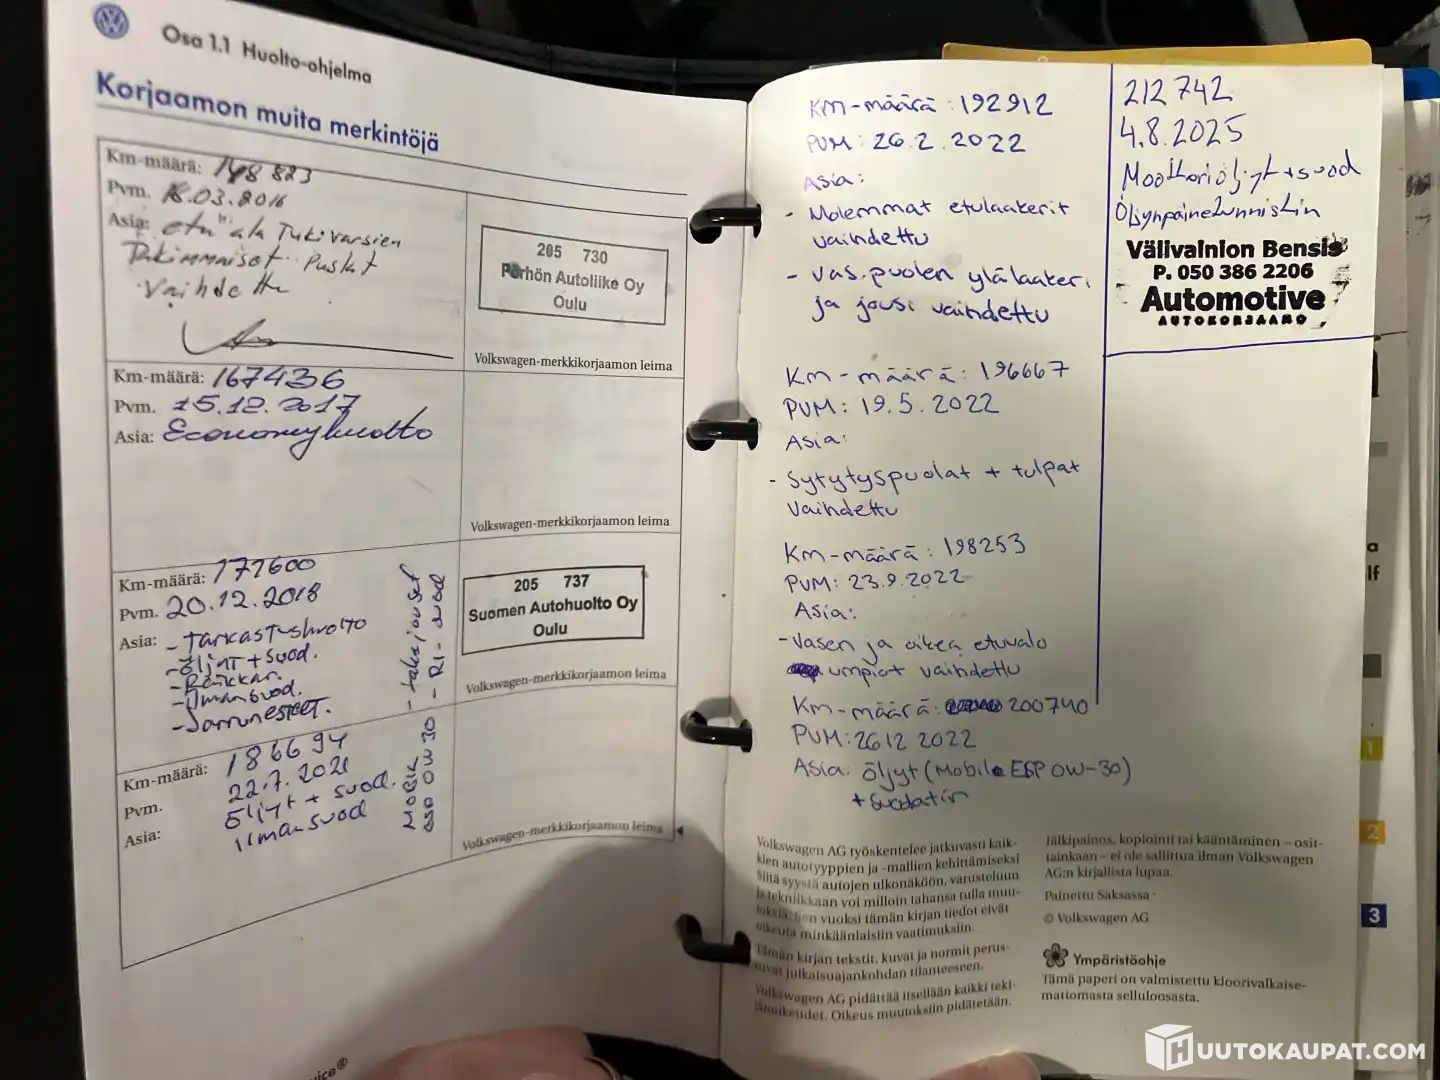 Osa 1.1 Huolto-ohjelma
Korjaamon muita merkintöjä
Km-määrä: 148 823
Pvm. 18.03.2016
Asia: etu ala Tukivarsien
Takimmaiset Puslat
Vaihdettu
205 730
Pörhön Autoliike Oy
Oulu
Volkswagen-merkkikorjaamon leima
Km-määrä: 167436
Pvm. 15.12.2017
Asia: Economyhuolto
Volkswagen-merkkikorjaamon leima
Km-määrä: 177600
Pvm. 20.12.2018
Asia: -Tarkastushuolto
-Öljyt + suod.
-Raikkar.
-Ilmansuod.
-Jarrunesteet.
- takajouset
- RI- suod
205 737
Suomen Autohuolto Oy
Oulu
Volkswagen-merkkikorjaamon leima
Km-määrä: 186694
Pvm. 22.7.2021
Asia: Öljyt + suod.
ilmansuod
0W30
Volkswagen-merkkikorjaamon leima
KM-määrä: 192912
PVM: 26.2.2022
Asia:
- Molemmat etulaakerit
vaihdettu
- vas.puolen ylälaakeri
ja jousi vaihdettu
KM-määrä: 196667
PVM: 19.5.2022
Asia:
- Sytytyspuolat + tulpat
vaihdettu
KM-määrä: 198253
PVM: 23.9.2022
Asia:
-Vasen ja oikea etuvalo
umpiot vaihdettu
KM-määrä: 200740
PVM: 26.12 2022
Asia: öljyt (Mobile ESP 0W-30)
+ suodatin
212 742
4.8.2025
Moottoriöljyt + suod
Öljynpainetunnistin
Välivainion Bensis
P. 050 386 2206
Automotive
AUTOKORJAAMO
Volkswagen AG työskentelee jatkuvasti kaik-
kien autotyyppien ja -mallien kehittämiseksi
Siitä syystä autojen ulkonäköön, varusteluun
ja tekniikkaan voi milloin tahansa tulla muu-
toksia. Sen vuoksi tämän kirjan tiedot eivät
oikeuta minkäänlaisiin vaatimuksiin.
Tämän kirjan tekstit, kuvat ja normit perus-
tuvat julkaisuajankohdan tilanteeseen.
Volkswagen AG pidättää itsellään kaikki teki-
jänoikeudet. Oikeus muutoksiin pidätetään.
Jälkipainos, kopiointi tai kääntäminen – osit-
tainkaan – ei ole sallittua ilman Volkswagen
AG:n kirjallista lupaa.
Painettu Saksassa
© Volkswagen AG
Ympäristöohje
Tämä paperi on valmistettu kloorivalkaise-
mattomasta selluloosasta.
1
2
3
HUUTOKAUPAT.COM